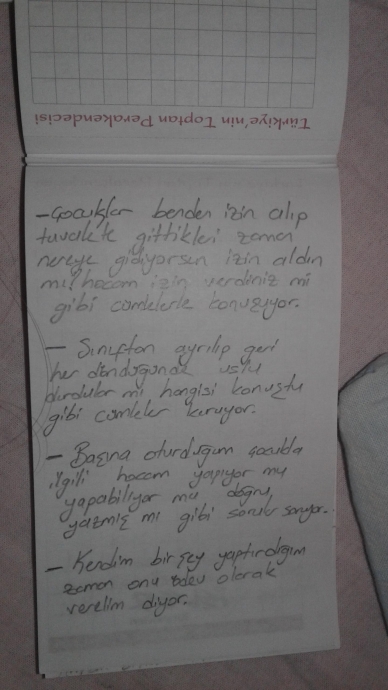 Türkiye'nin Toptan Perakendecisi
- Çocuklar benden izin alıp
tuvalete gittikleri zaman
nereye gidiyorsun izin aldın
mı? hocam izin verdiniz mi
gibi cümlelerle konuşuyor.
- Sınıftan ayrılıp geri
her döndüğünde uslu
durdular mı hangisi konuştu
gibi cümleler kuruyor.
- Başına oturduğum çocukla
ilgili hocam yapıyor mu
yapabiliyor mu doğru
yazmış mı gibi sorular soruyor.
- Kendim bir şey yaptırdığım
zaman onu ödev olarak
verelim diyor.